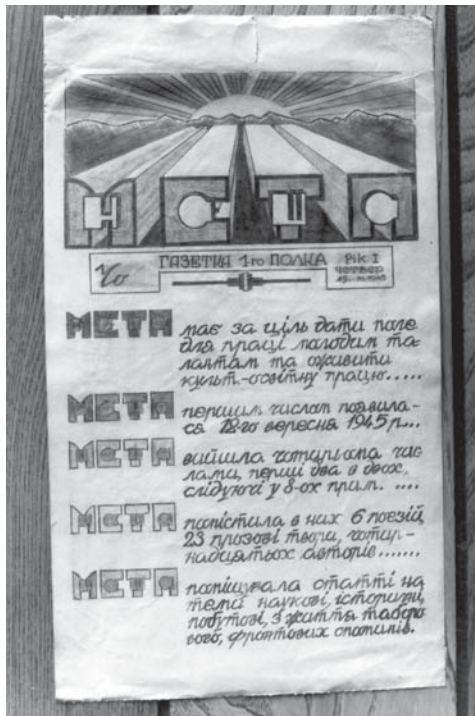 МЕТА
ГАЗЕТКА 1го ПОЛКА
Рік I
ЧЕТВЕР
МЕТА має за ціль дати поле
для праці молодим та-
лантам та оживити
культ.-освітну працю.....
МЕТА першим числом появила-
ся 12-го вересня 1945 р...
МЕТА вийшла чотирьома чис-
лами, перші два в двох,
слідуючі у 8-ох прим. ....
МЕТА помістила в них 6 поезій,
23 прозові твори, чотир-
надцятьох авторів.......
МЕТА поміщувала статті на
теми наукові, історичні,
побутові, з життя таборо-
вого, фронтових споминів.